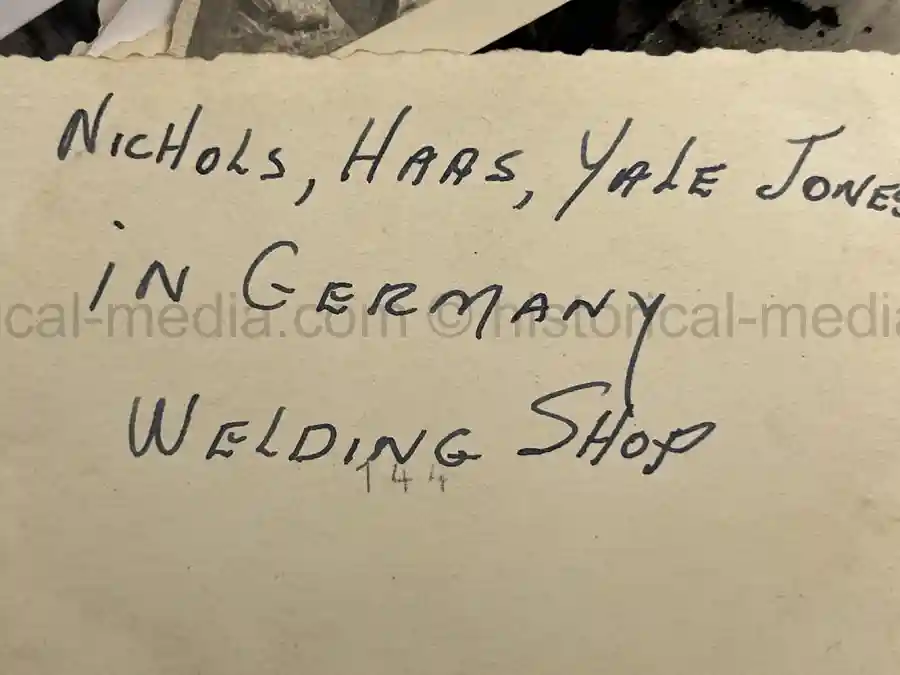 Nichols, Haas, Yale Jones
in Germany
ical-media.com © historical-media
Welding Shop
144